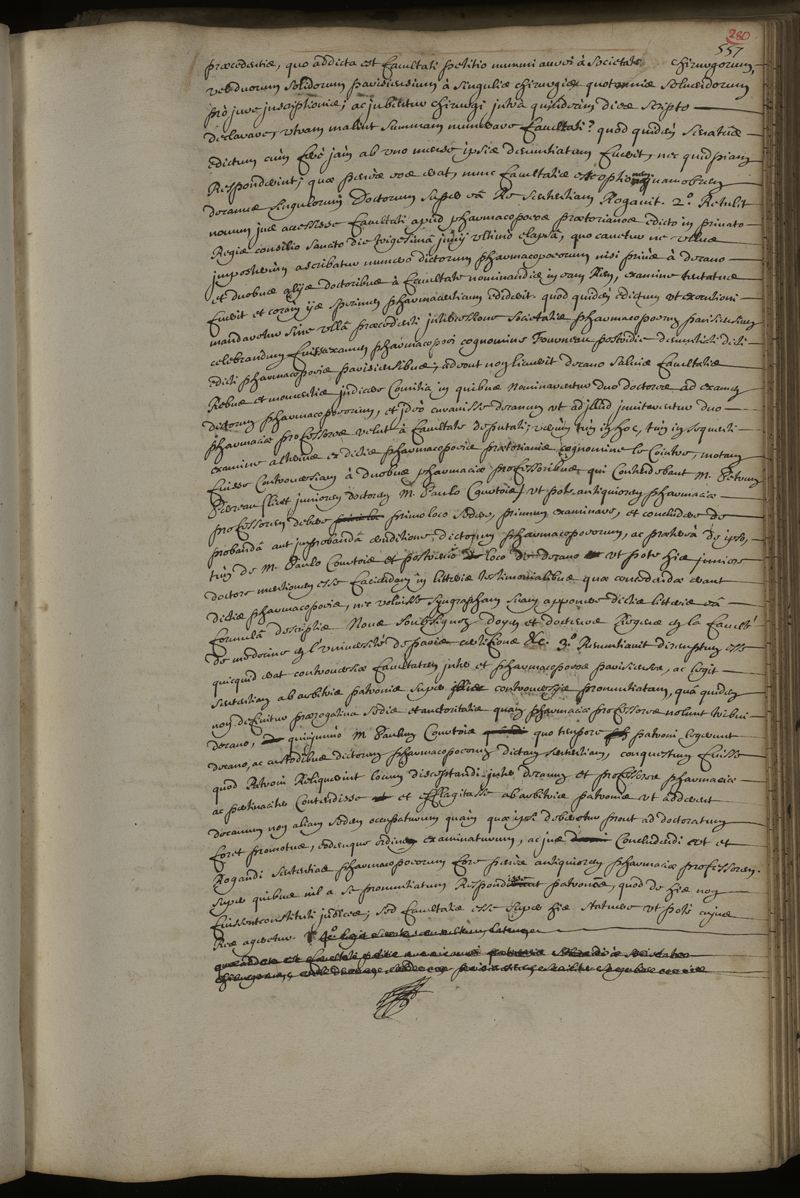 280
557
præcedentis, quo addicta est facultati petitio nummi aurei à societate chirurgorum,
vel duorum solidorum parisiensium à singulis chirurgis quotannis solvendorum
pro jure inscriptionis; ac jubentur chirurgi intra quindecim dies scripto
declarare, utram malint summam numerare facultati? quod quidem senatus
edictum cum esse jam ab uno mense ipsis denuntiatum fuerit, nec quidpiam
responderint; quæ penes eos erat, nunc facultatis est optio quamobrem
decanus singulorum Doctorum super eâ re sententiam rogavit. 2.° Retulit
novum jus accessisse facultati apud pharmacopoeos prætorianos edicto in privato
Regis consilio sancto die vigesimâ junij ultimo elapsâ, quo cavetur ne ullus
in posterum ascribatur numero dictorum pharmacopoeorum nisi prius à decano
et duobus alijs doctoribus à facultate nominandis in eam rem, examine tentatus
fuerit et coram ijs specimen pharmaceuticum ediderit quod quidem edictum ut executioni
mandaretur sine ullâ præcedenti intercessione societatis pharmacopoeorum parisiensium
celebrandum fuit examen pharmacopoei cognomine Fourneau postridie denuntiati dicti
edicti pharmacopoeis parisiensibus; adeout non licuerit decano salvis facultatis
rebus et monentis judices comitia in quibus nominarentur duo doctores ad examen
dictorum pharmacopoeorum, et ideò curavisse decanum ut ad illud invitarentur duo
pharmaciæ professores velut à facultate deputati; verùm tùm in hoc, tùm in sequenti
examine alterius ex dictis pharmacopoeis prætorianis cognomine le Cointre, motam
fuisse controversiam à duobus pharmaciæ professoribus, qui contendebant M. Petrum
Perreau licet juniorem doctorem M. Paulo Courtois, ut pote antiquiorem pharmaciæ
professorem debere primo loco sedere, primum examinare, et concludere de
probandâ aut improbandâ eruditione dictorum pharmacopoeorum, ac præterea de ipso,
tùm de M. Paulo Courtois et postremo loco de decano ut pote his juniore
doctore mentionem esse faciendam in litteris testimonialibus quæ concedendæ erant
dictis pharmacopoeis, nec voluisse syngrapham suam apponere dictis litteris eâ
formulâ descriptis Nous soubsignez doyen et docteurs Regens en la facult&eacute;
de medecine en l'université de paris certifions &c. 3.° Renuntiavit diremptum esse
quicquid erat controversiæ facultatem inter et pharmacopoeos parisienses, ac legit
sententiam ab arbitris patronis super controversijs pronuntiatam, quâ quidem
non definitur prærogativa sedis et auctoritatis quam pharmaciæ professores nolunt tribui
decano, quinimmo M. Paulum Courtois quo tempore patroni legerunt
decano, ac custodibus dictorum pharmacopoeorum dictam sententiam, conquestum fuisse
quod patroni reliquerint locum disceptandi inter decanum et professores pharmaciæ
ac pertinaciter contendisse et efflagitasse ab arbitris patronis ut adderent
decanum non aliam sedem occupaturum quàm quæ ipsi deberetur prout ad doctoratum
foret promotus, eodemque ordine examinaturum, ac jus concludendi ut et
rogandi sententias pharmacopoeorum fore penes antiquiorem pharmaciæ professorem.
super quibus nil a se pronuntiatum responderunt patroni, quod de his non
fuissent constituti judices; sed facultatis esse super his statuere ut pote cujus
res ageretur.